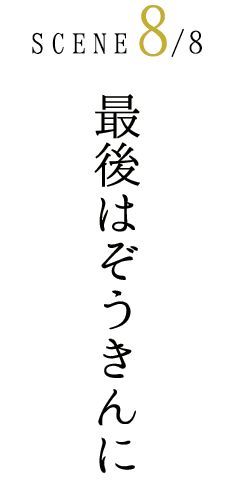 SCENE 8/8
最後はぞうきんに